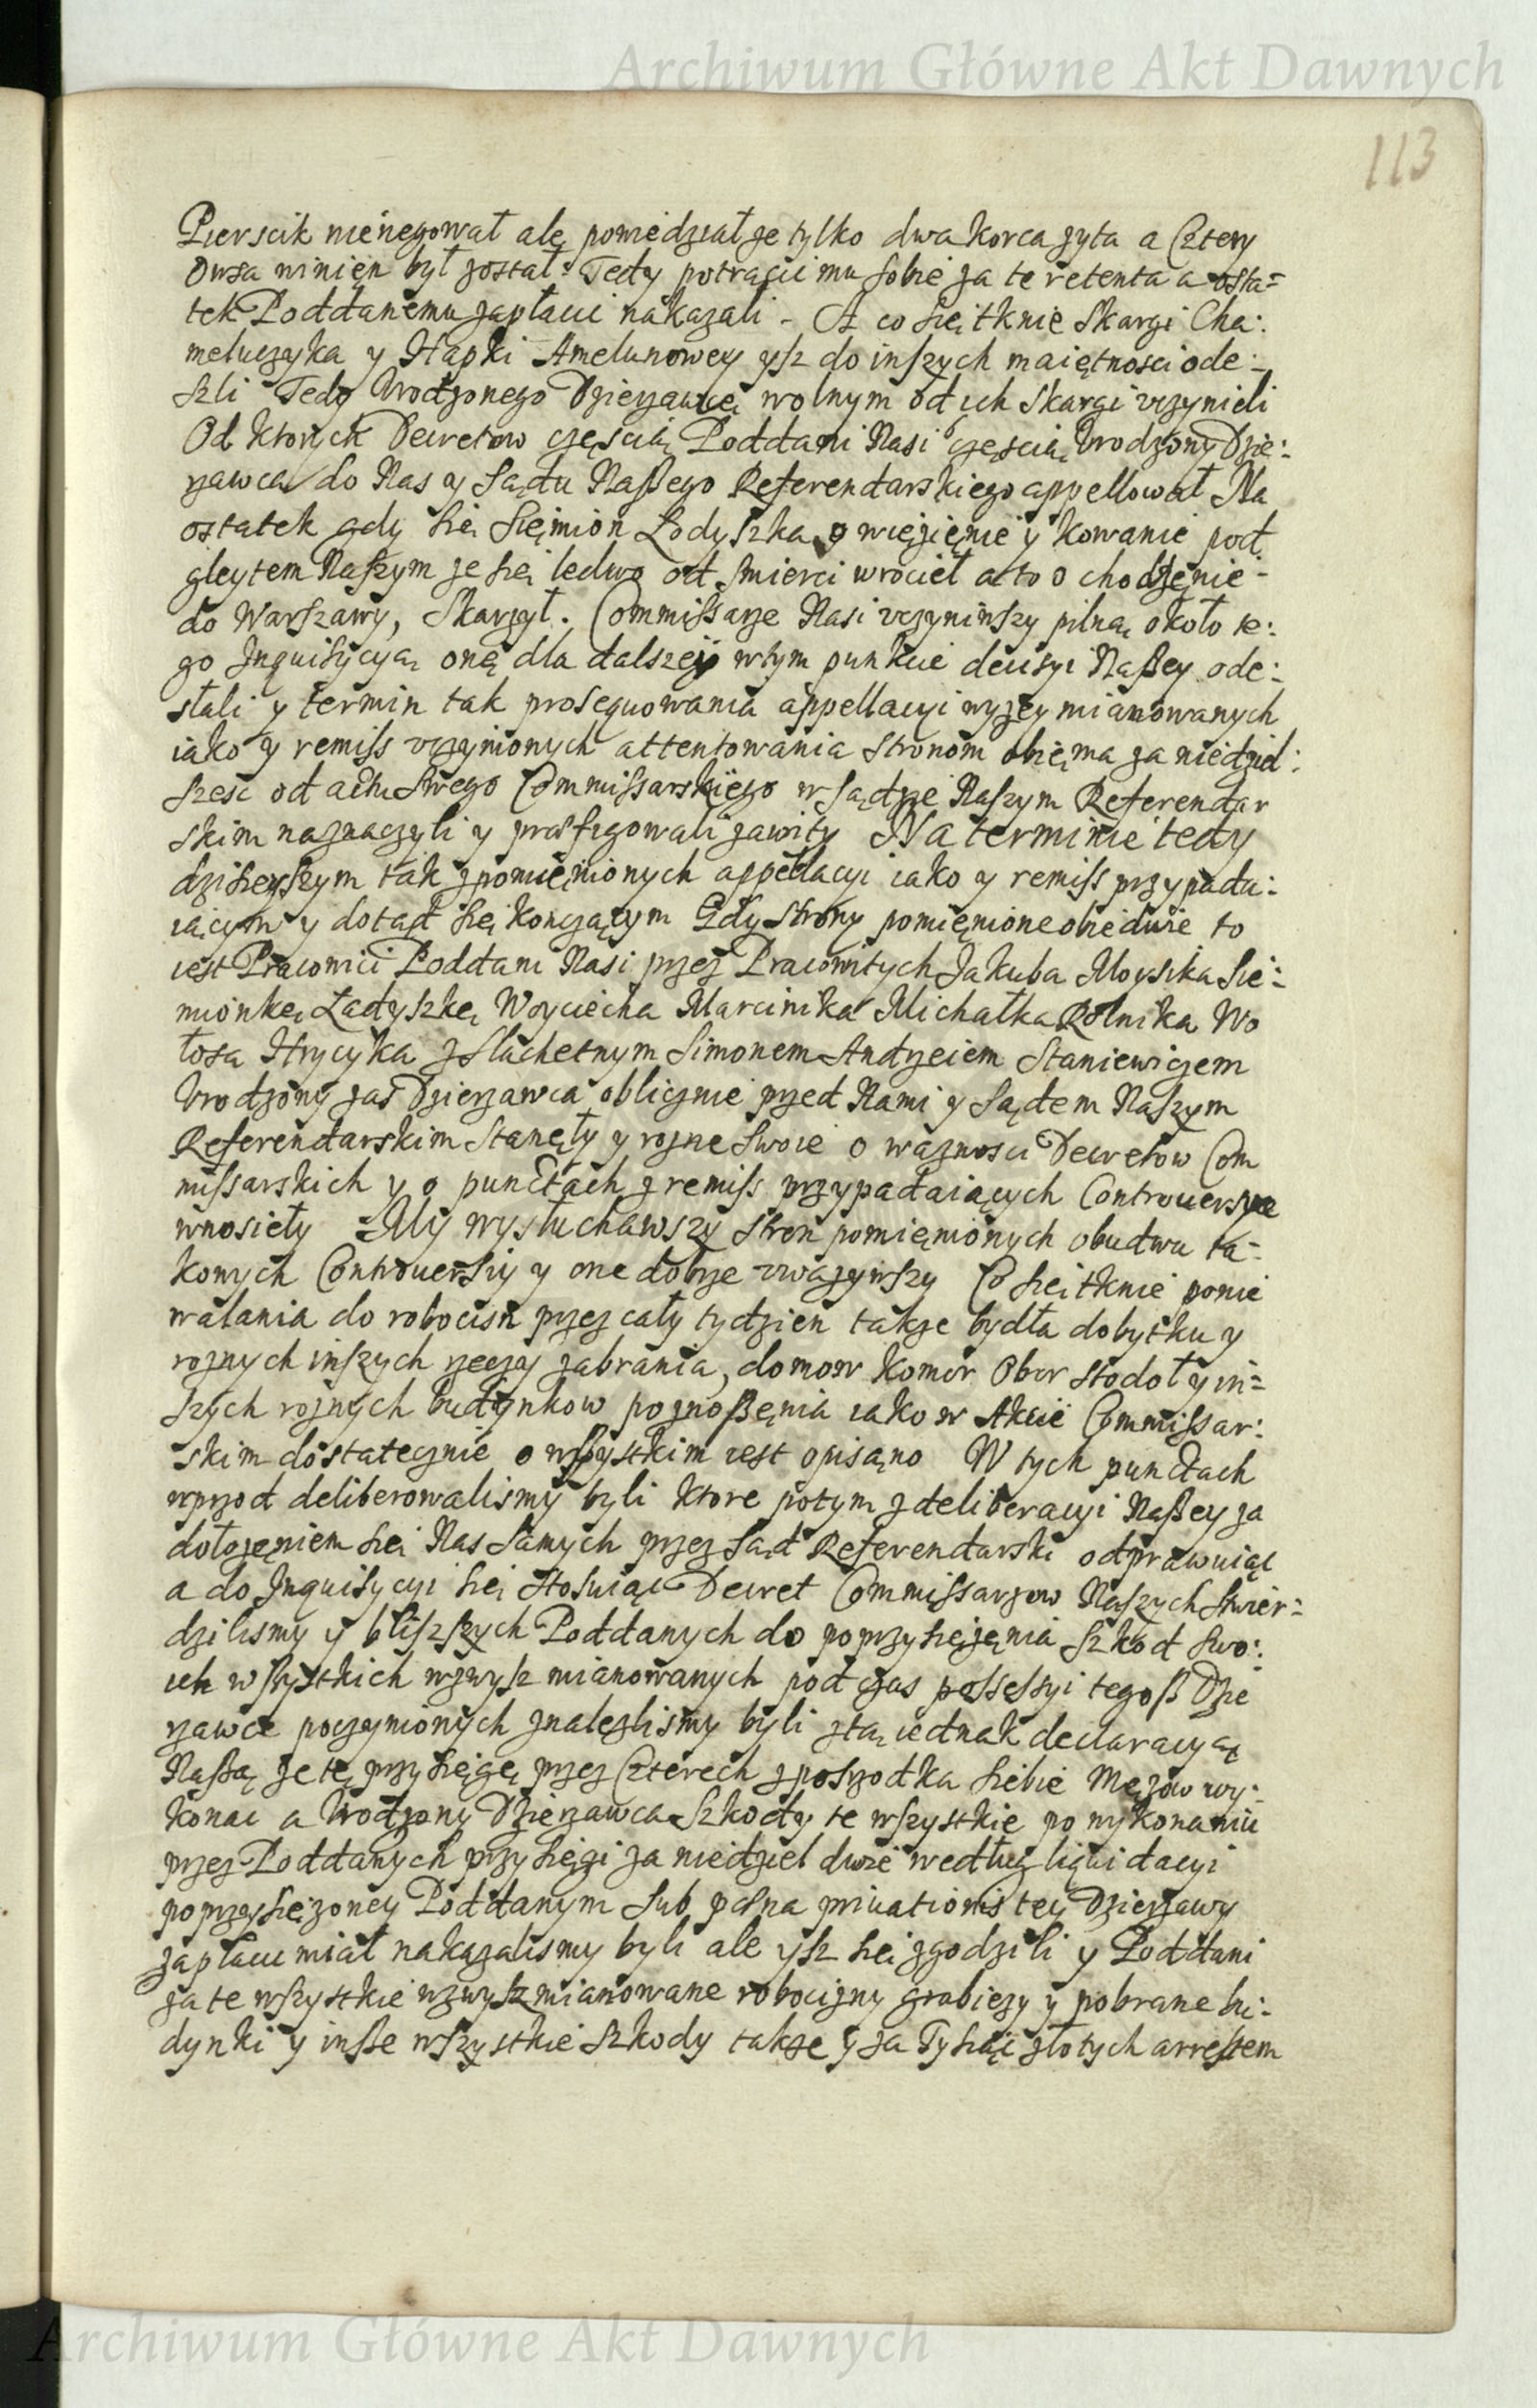 Archiwum Główne Akt Dawnych
113
Pierscik nienegował ale powiedział ze tylko dwa korca zyta a Cztery
Owsa winien był został. Tedy potrącic mu sobie za te retenta a osta=
tek Poddanemu zapłacic nakazali - A co się tknie Skargi Cha:
meluczyka y Hapki Amelunowey ysz do inszych maiętnosci ode:
szli Tedy Urodzonego Dzierzawcę wolnym od ich Skargi vczynieli
Od ktorych Decretow częscią Poddani Nasi częscią Urodzony Dzie:
rzawca do Nas y Sądu Naßego Referendarskiego appellował Na
ostatek gdy się Siemion Łodyszka o więzienie y kowanie pod
gleytem Naszym ze się ledwo od smierci wrocieł a to o chodzenie
do Warszawy, Skarzył. Commissarze Nasi vczyniwszy pilną około te:
go Inquisycyą onę dla dalszey w tym punkcie decisyi Naßey ode:
słali y termin tak prosequowania appellacyi wyzey mianowanych
iako y remiss vczynionych attentowania Stronom obiema za niedziel:
szesc od actu swego Commissarskiego w sądzie Naszym Referendar
skim naznaczyli y praefigowali zawity Na terminie tedy
dzisieyszym tak zpomienionych appellacyi iako y remiss przypada:
iącym y dotąd się konczącym Gdy Strony pomienione obiedwie to
iest Pracowici Poddani Nasi przez Pracowitych Jakuba Moysika Sie:
mionkę Ładyszkę Woyciecha Marcinika Michałka Rolnika Wo
łosa Hrycyka z Slachetnym Simonem Andrzeiem Staniewiczem
Urodzony zas Dzierzawca oblicznie przed Nami y Sądem Naszym
Referendarskim Stanęły y rozne Swoie o waznosci Decretow Com
missarskich y o punctach z remiss przypadaiących Controuersye
wnosieły My wysłuchawszy Stron pomienionych obudwu ta=
kowych Controuersiy y one dobrze vwazywszy Co się tknie ponie
walania do robocizn przez cały tydzien takze bydła dobytku y
roznych inszych rzeczy zabrania, domow komor Obor stodoł y in=
szych roznych budynkow poznoßenia iako w Akcie Commissar:
skim dostatecznie o wszystkim iest opisano W tych punctach
wprzod deliberowalismy byli ktore potym z deliberacyi Naßey za
dołozeniem się Nas Samych przez Sąd Referendarski odprawuiąc
a do Inquisycyi się stosuiąc Decret Commissarzow Naszych Stwier=
dzilismy y bliszszych Poddanych do poprzysięzenia szkod swo:
ich wszystkich wzwysz mianowanych pod czas possessyi tegoß Dzie
rzawce poczynionych znalezlismy byli z tą iednak declaracyą
Naßą ze tę przysięgę przez Czterech z posrodka siebie Męzow wy:
konac a Urodzony Dzierzawca Szkody te wszystkie po wykonaniu
przez Poddanych przysięgi za niedziel dwie według liquidacyi
poprzysięzoney Poddanym sub paena priuationis tey Dzierzawy
zapłacic miał nakazalismy byli ale ysz się zgodzili y Poddani
za te wszystkie wzwysz mianowane robocizny grabiezy y pobrane bu:
dynki y inße wszystkie szkody takze y za Tysiąc złotych arrestem
Archiwum Główne Akt Dawnych